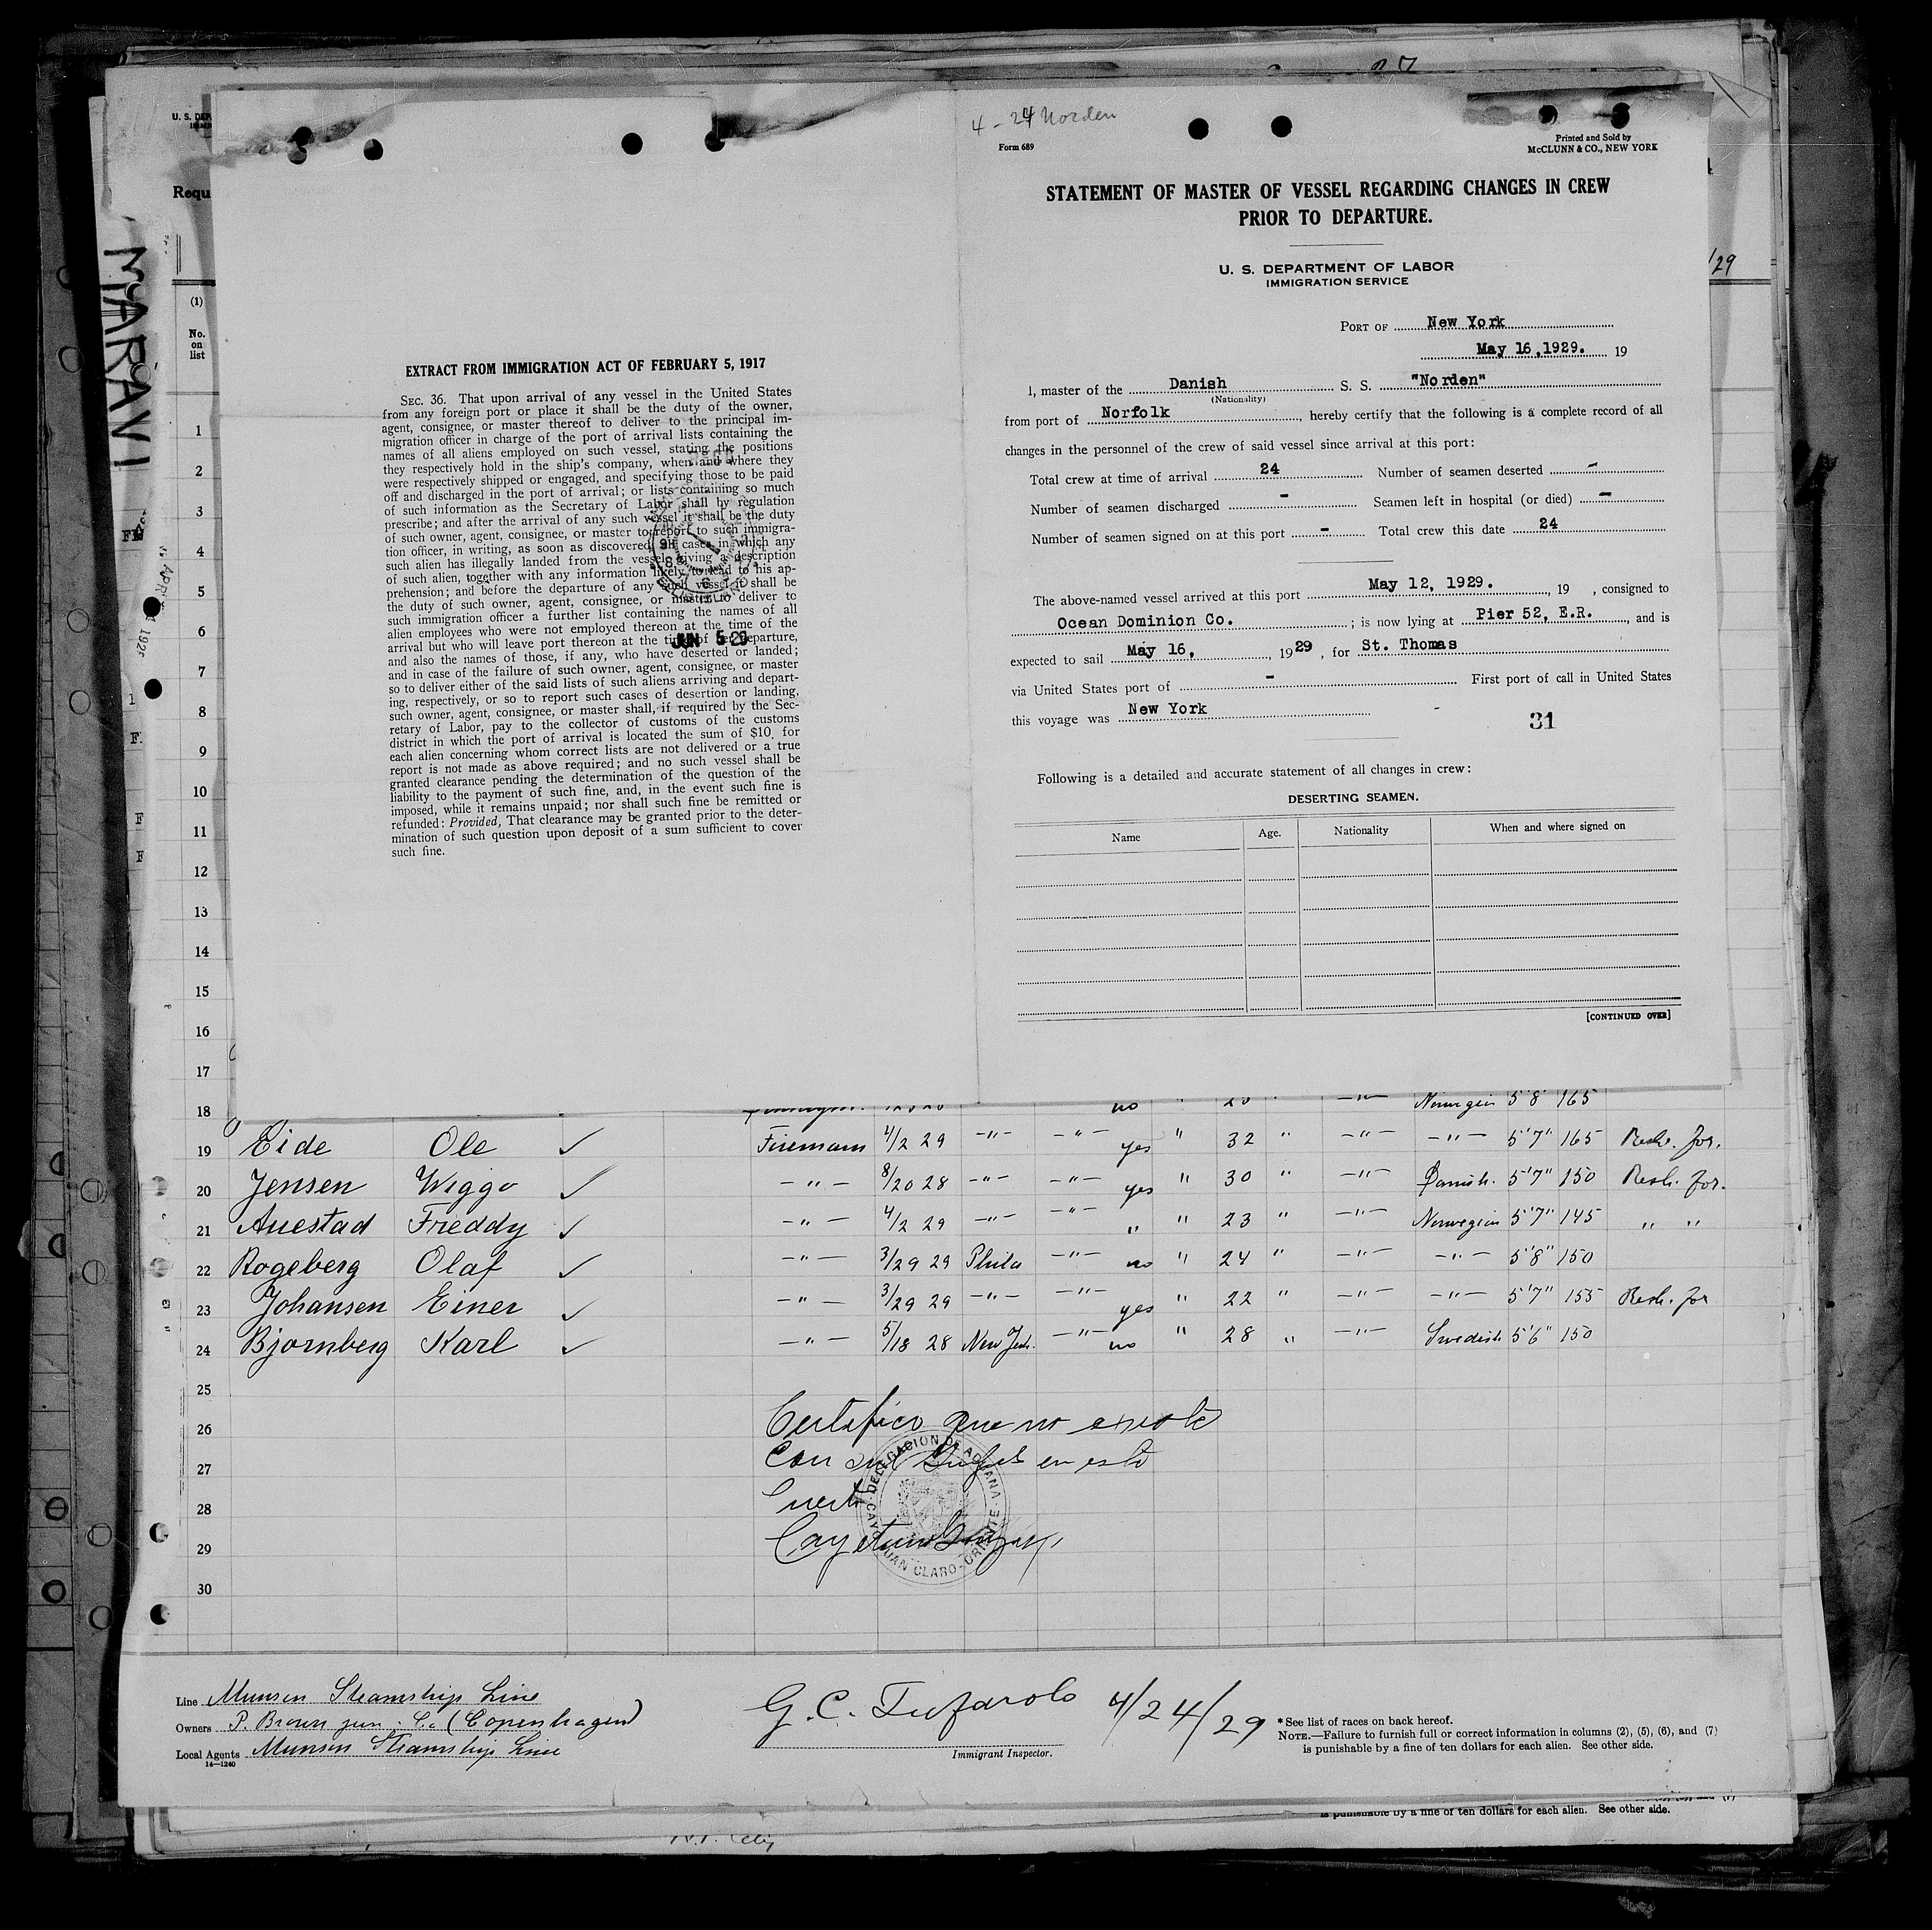 MARAVI
U. S. DEP
Requ
/29
EXTRACT FROM IMMIGRATION ACT OF FEBRUARY 5, 1917
SEC. 36. That upon arrival of any vessel in the United States
from any foreign port or place it shall be the duty of the owner,
agent, consignee, or master thereof to deliver to the principal im-
migration officer in charge of the port of arrival lists containing the
names of all aliens employed on such vessel, stating the positions
they respectively hold in the ship's company, when and where they
were respectively shipped or engaged, and specifying those to be paid
off and discharged in the port of arrival; or lists containing so much
of such information as the Secretary of Labor shall by regulation
prescribe; and after the arrival of any such vessel it shall be the duty
of such owner, agent, consignee, or master to report to such immigra-
tion officer, in writing, as soon as discovered, all cases in which any
such alien has illegally landed from the vessel, giving a description
of such alien, together with any information likely to lead to his ap-
prehension; and before the departure of any such vessel it shall be
the duty of such owner, agent, consignee, or master to deliver to
such immigration officer a further list containing the names of all
alien employees who were not employed thereon at the time of the
arrival but who will leave port thereon at the time of her departure,
and also the names of those, if any, who have deserted or landed;
and in case of the failure of such owner, agent, consignee, or master
so to deliver either of the said lists of such aliens arriving and depart-
ing, respectively, or so to report such cases of desertion or landing,
such owner, agent, consignee, or master shall, if required by the Sec-
retary of Labor, pay to the collector of customs of the customs
district in which the port of arrival is located the sum of $10 for
each alien concerning whom correct lists are not delivered or a true
report is not made as above required; and no such vessel shall be
granted clearance pending the determination of the question of the
liability to the payment of such fine, and, in the event such fine is
imposed, while it remains unpaid; nor shall such fine be remitted or
refunded: Provided, That clearance may be granted prior to the deter-
mination of such question upon deposit of a sum sufficient to cover
such fine.
JUN 5 29
4 - 24 Norden
Form 689
Printed and Sold by
McCLUNN & CO., NEW YORK
STATEMENT OF MASTER OF VESSEL REGARDING CHANGES IN CREW
PRIOR TO DEPARTURE.
U. S. DEPARTMENT OF LABOR
IMMIGRATION SERVICE
PORT OF New York
May 16,1929. 19
I, master of the Danish S. S. "Norden"
(Nationality)
from port of Norfolk, hereby certify that the following is a complete record of all
changes in the personnel of the crew of said vessel since arrival at this port:
Total crew at time of arrival 24 Number of seamen deserted -
Number of seamen discharged - Seamen left in hospital (or died) -
Number of seamen signed on at this port - Total crew this date 24
The above-named vessel arrived at this port May 12, 1929., 19 , consigned to
Ocean Dominion Co. ; is now lying at Pier 52, E.R., and is
expected to sail May 16, , 1929 , for St. Thomas
via United States port of - First port of call in United States
this voyage was New York
31
Following is a detailed and accurate statement of all changes in crew:
DESERTING SEAMEN.
Name Age. Nationality When and where signed on
[CONTINUED OVER]
(1)
No.
on
list
1
2
3
4
5
6
7
8
9
10
11
12
13
14
15
16
17
18 no " Norwegian 5'8 165
19 Eide Ole ✓ Firemann 4/2 29 -"- -"- yes " 32 " -"- -"- 5'7" 165 Resh. for.
20 Jensen Wiggo ✓ -"- 8/20 28 -"- -"- yes " 30 " -"- Danish. 5'7" 150 Resh. for.
21 Auestad Freddy ✓ -"- 4/2 29 -"- -"- " " 23 " -"- Norwegian 5'7" 145 " "
22 Rogeberg Olaf ✓ -"- 3/29 29 Phila -"- no " 24 " -"- -"- 5'8" 150
23 Johansen Einer ✓ -"- 3/29 29 -"- -"- yes " 22 " -"- -"- 5'7" 155 Resh. for
24 Bjornberg Karl ✓ -"- 5/18 28 New York. -"- no " 28 " -"- Swedish 5'6" 150
25
26
27
28
29
30
Certifico que no existe
Consul en este
Puerto
DELEGACION DE ADUANA
CAYO JUAN CLARO - ORIENTE
Line Munson Steamship Line
Owners P. Brown jun. Co. (Copenhagen)
Local Agents Munson Steamship Line
14—1240
G. C. Tufarolo 4/24/29
Immigrant Inspector.
*See list of races on back hereof.
NOTE.—Failure to furnish full or correct information in columns (2), (5), (6), and (7)
is punishable by a fine of ten dollars for each alien. See other side.
is punishable by a fine of ten dollars for each alien. See other side.